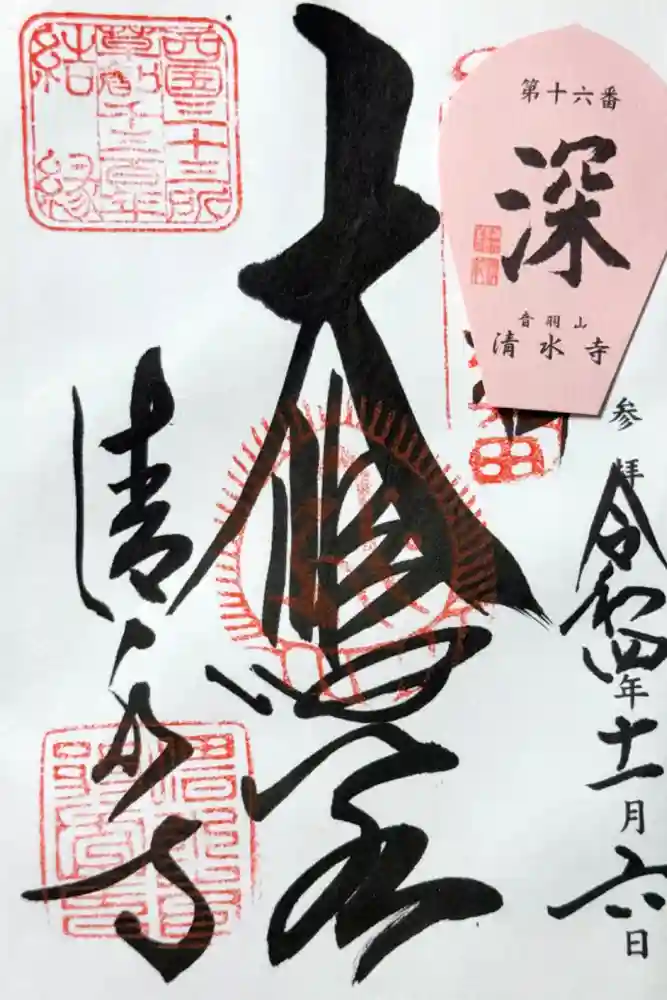 西国三十三所
草創千三百年
結縁
第十六番
深
音羽山
清水寺
参拝
令和四年十一月六日
大悲閣
清水寺